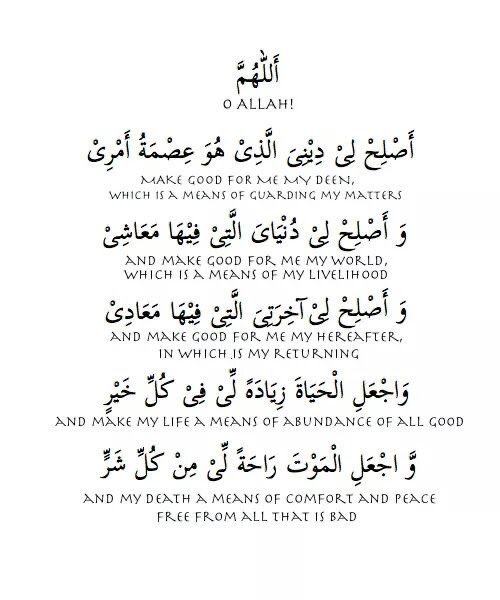 أَللّٰهُمَّ
O ALLAH!
أَصْلِحْ لِىْ دِيْنِىَ الَّذِىْ هُوَ عِصْمَةُ أَمْرِىْ
MAKE GOOD FOR ME MY DEEN,
WHICH IS A MEANS OF GUARDING MY MATTERS
وَ أَصْلِحْ لِىْ دُنْيَاىَ الَّتِىْ فِيْهَا مَعَاشِىْ
AND MAKE GOOD FOR ME MY WORLD,
WHICH IS A MEANS OF MY LIVELIHOOD
وَ أَصْلِحْ لِىْ آخِرَتِىَ الَّتِىْ فِيْهَا مَعَادِىْ
AND MAKE GOOD FOR ME MY HEREAFTER,
IN WHICH IS MY RETURNING
وَاجْعَلِ الْحَيَاةَ زِيَادَةً لِّىْ فِىْ كُلِّ خَيْرٍ
AND MAKE MY LIFE A MEANS OF ABUNDANCE OF ALL GOOD
وَّ اجْعَلِ الْمَوْتَ رَاحَةً لِّىْ مِنْ كُلِّ شَرٍّ
AND MY DEATH A MEANS OF COMFORT AND PEACE
FREE FROM ALL THAT IS BAD